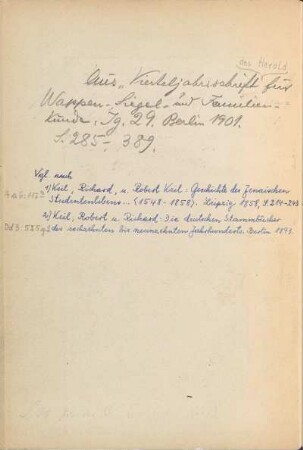 des Herold
Aus „Vierteljahrsschrift für
Wappen-, Siegel- und Familien-
kunde. Jg. 29. Berlin 1901.
S. 285-389.
Vgl. auch
1) Keil, Richard, u. Robert Keil. Geschichte des Jenaischen
Studentenlebens... (1548-1858). Leipzig 1858, S.
2) Keil, Robert u. Richard, Die deutschen Stammbücher
des sechzehnten bis neunzehnten Jahrhunderts. Berlin 1893.